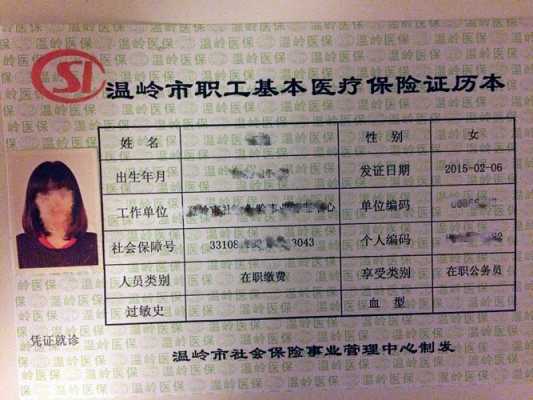 CSI 温岭市职工基本医疗保险证历本
姓 名 性 别 女
出生年月 发证日期 2015-02-06
工作单位 单位编码
社会保障号 33108 3043 个人编码
人员类别 在职缴费 享受类别 在职公务员
过敏史 血 型
凭证就诊
温岭市社会保险事业管理中心制发